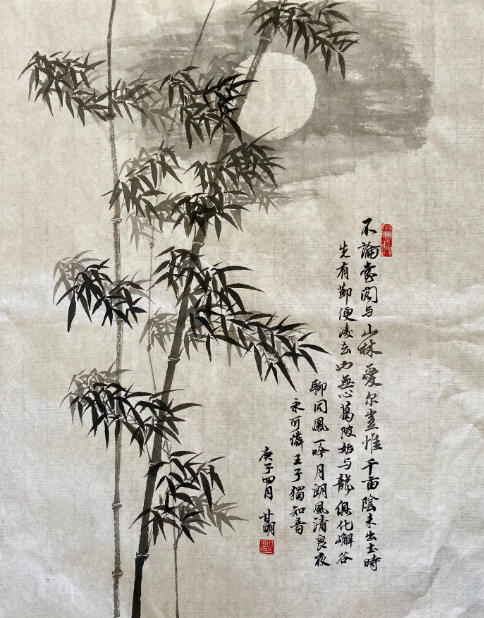 不論臺閣与山林愛尔豈惟千亩陰未出土時
先有節便凌云去也無心葛陂始与龍俱化嶰谷
聊同鳳一吟月朗風清良夜
永可憐王子獨知音
庚子四月